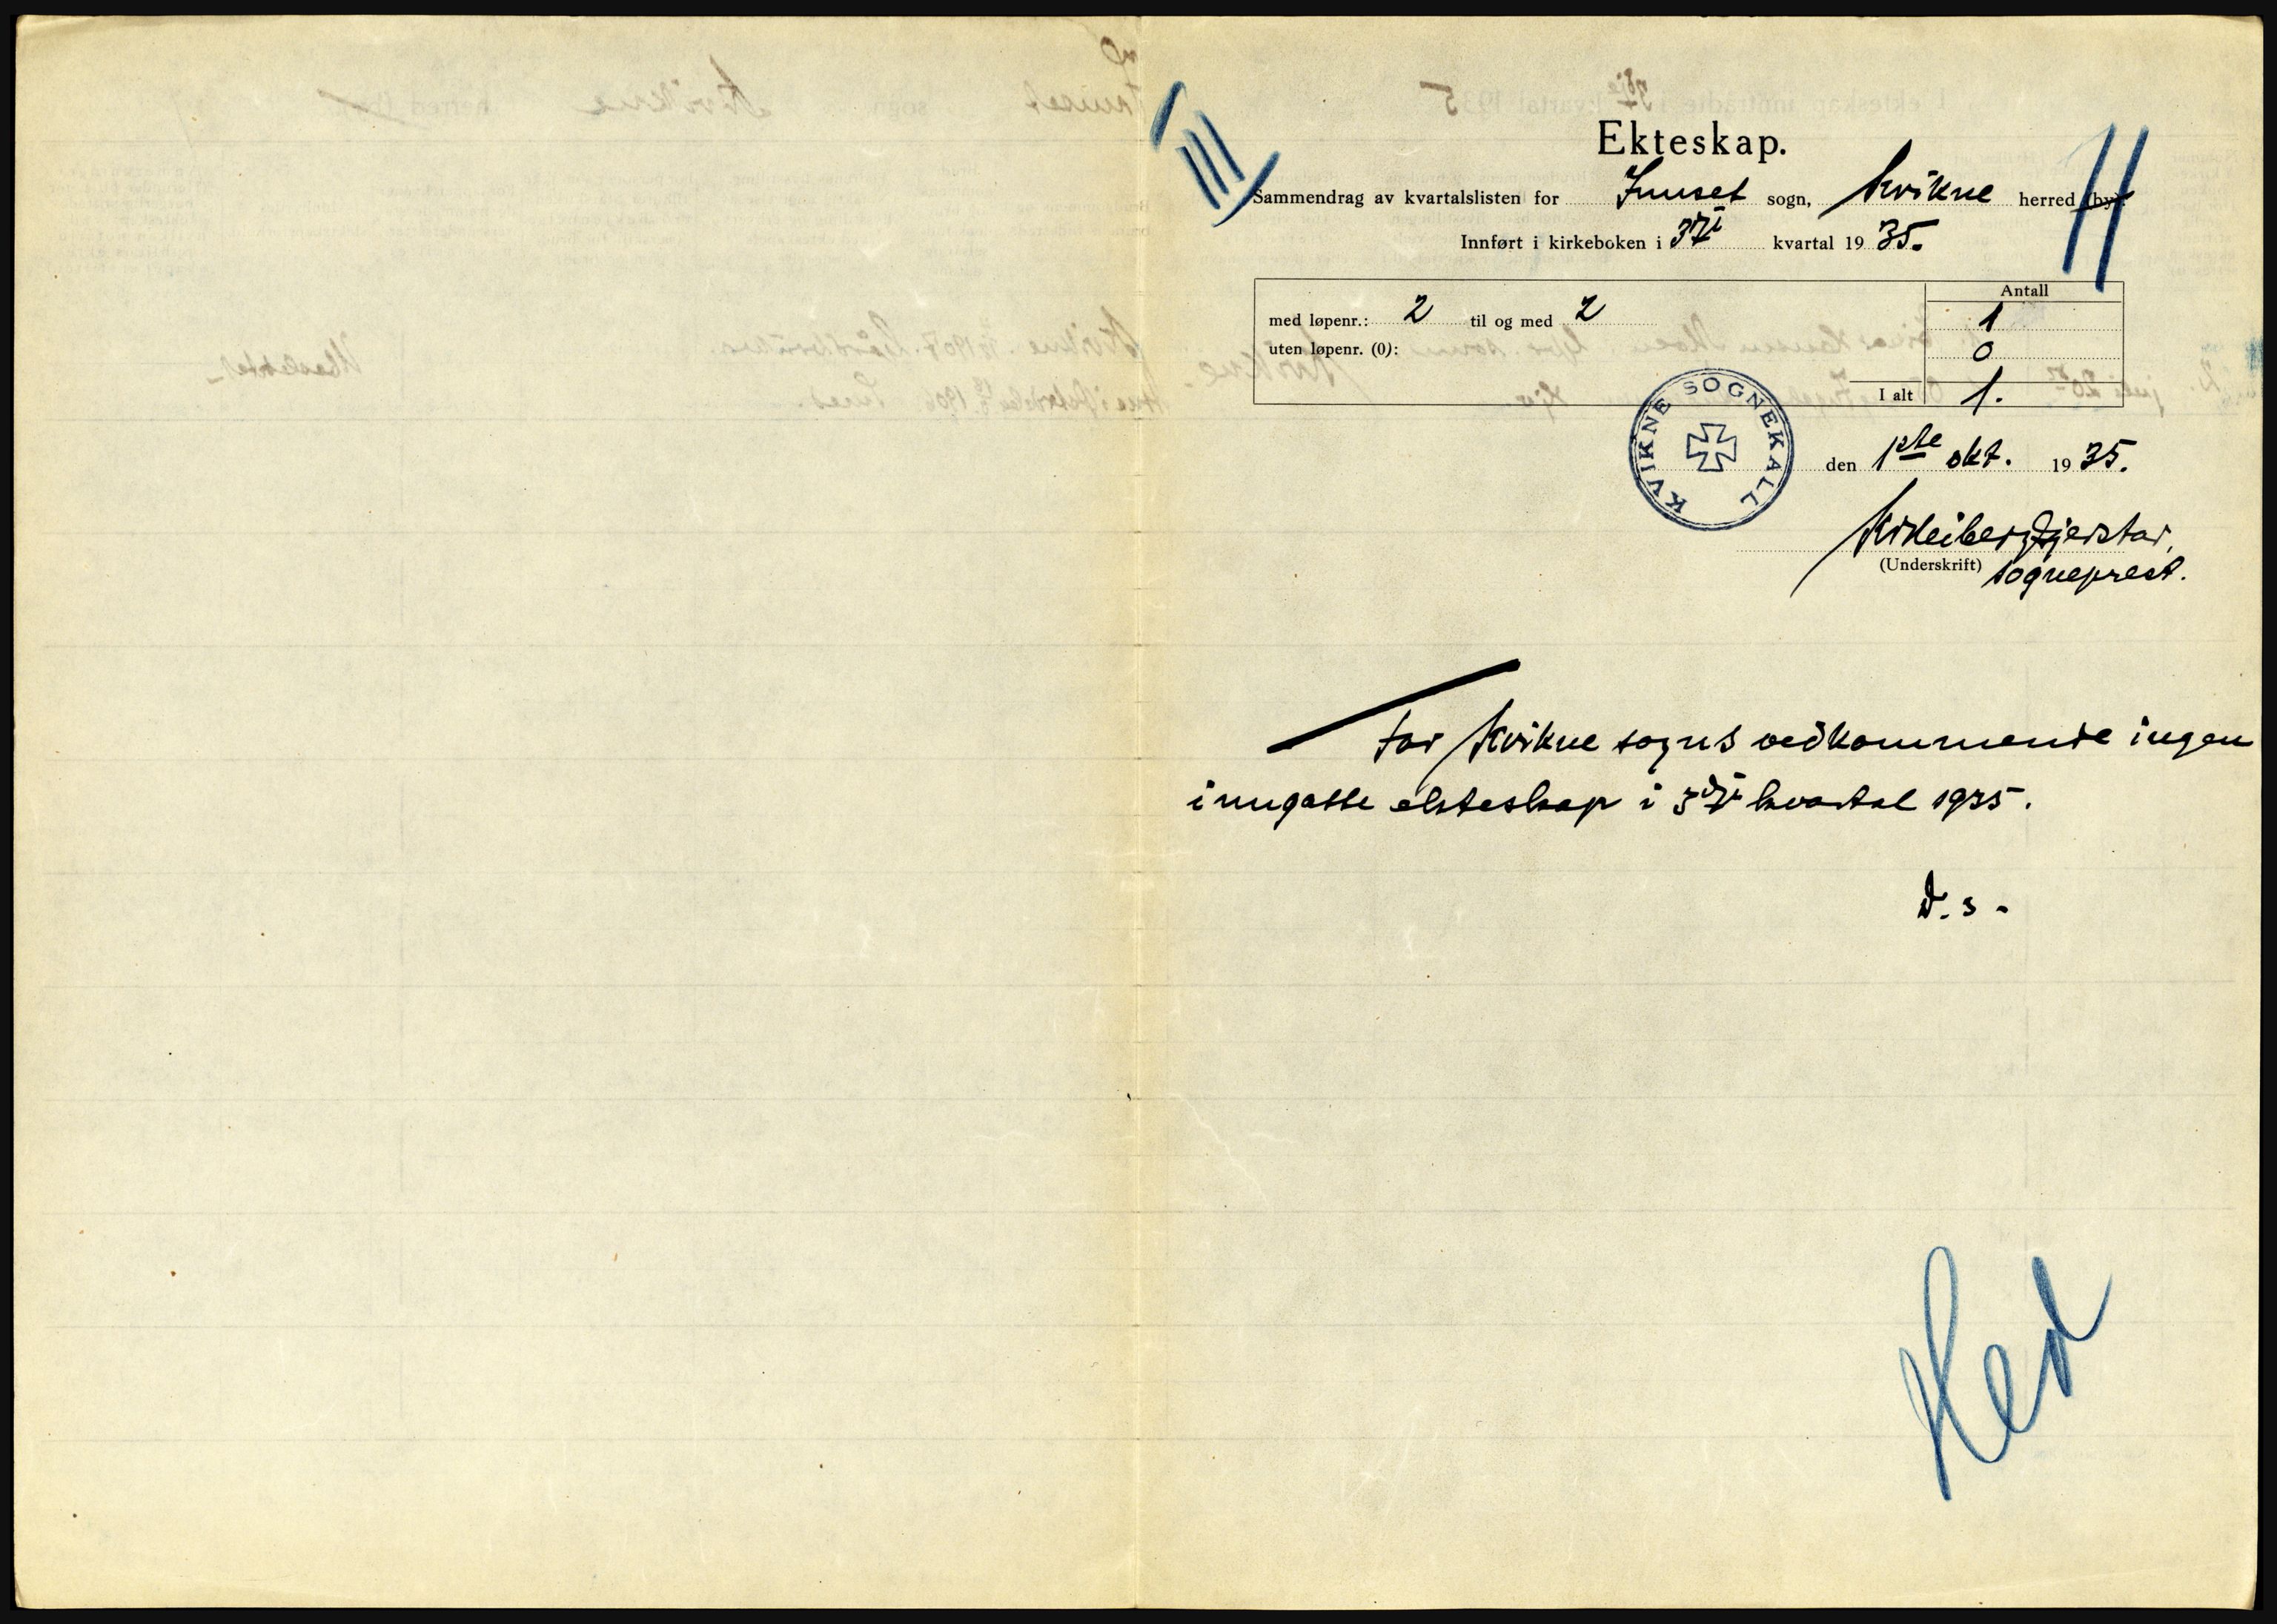 III
Ekteskap.
Sammendrag av kvartalslisten for Innset sogn, Kvikne herred (by).
Innført i kirkeboken i 3dje kvartal 1935.
Antall
med løpenr.: 2 til og med 2 1
uten løpenr. (0): 0
I alt 1.
KVIKNE SOGNEKALL
den 1ste okt. 1935.
(Underskrift) sogneprest.
For Kvikne sogns vedkommende ingen
inngåtte ekteskap i 3dje kvartal 1935.
D.s.
Hed